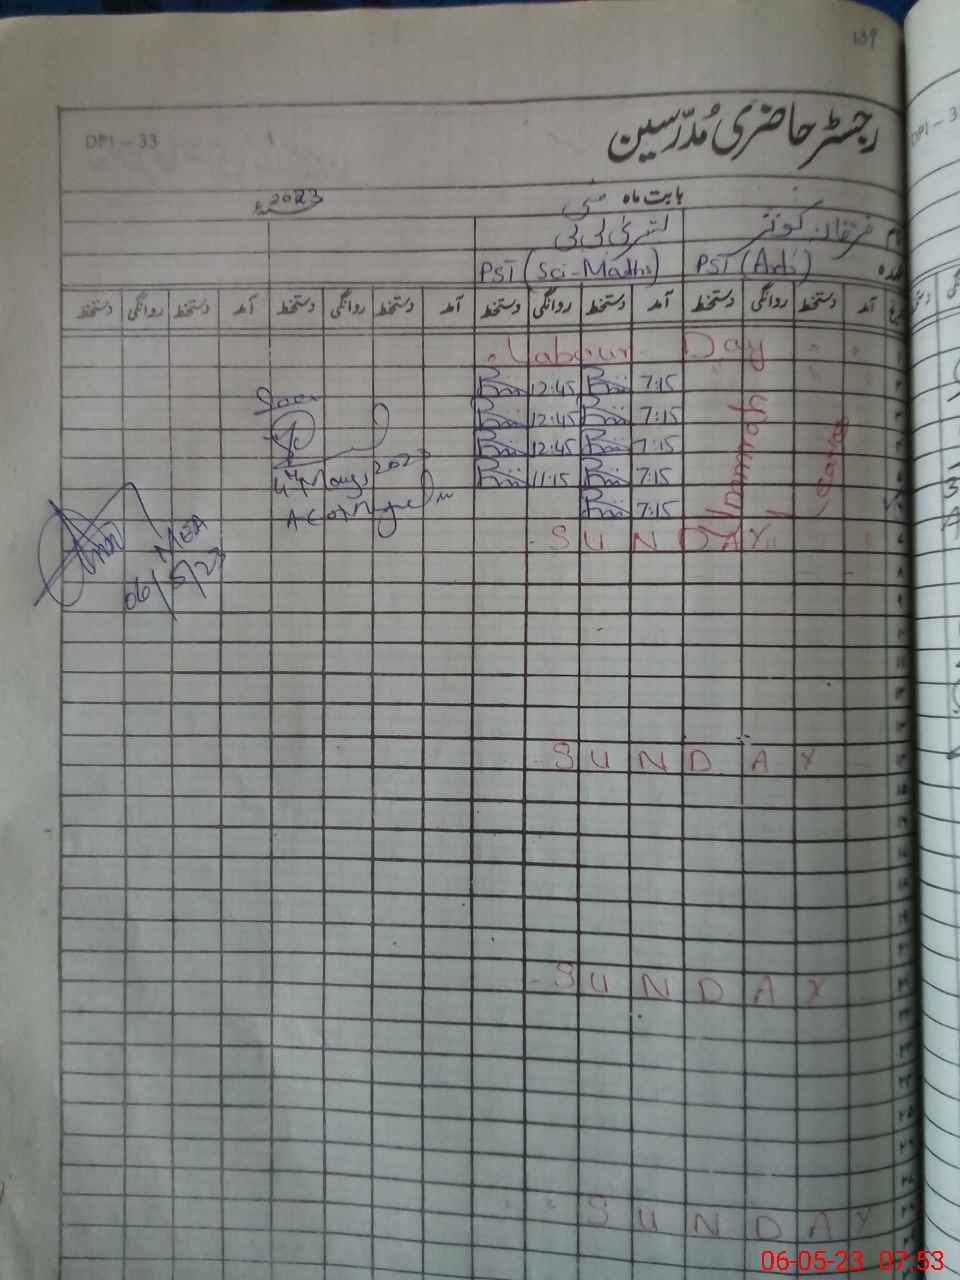 139
رجسٹر حاضری مُدرّسین
DPI - 33
DPI - 3
بابت ماہ مئی 2023ء
کوثر
PST (Sci-Maths) PST (Arts)
آمد دستخط روانگی دستخط آمد دستخط روانگی دستخط آمد دستخط روانگی دستخط آمد دستخط روانگی دستخط
Labour Day
7:15 12:45
7:15 12:45
7:15 12:45
7:15 11:15
7:15
Ummrah Leave
Seen
4th May 2023
MEA
06/5/23
SUNDAY
SUNDAY
SUNDAY
SUNDAY
06-05-23 07:53